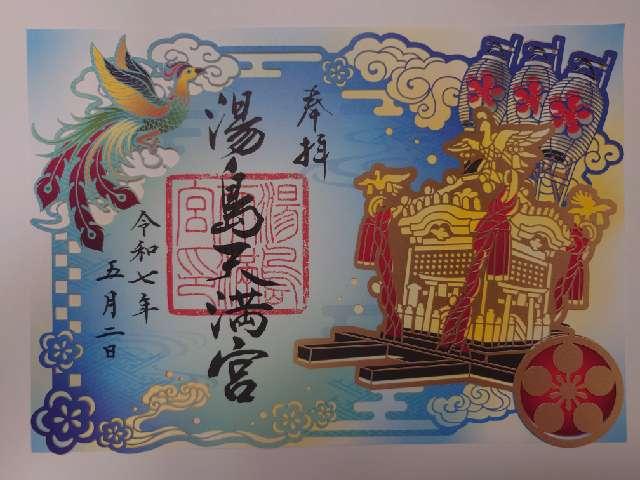 奉拝
湯島天満宮
令和七年
五月二日